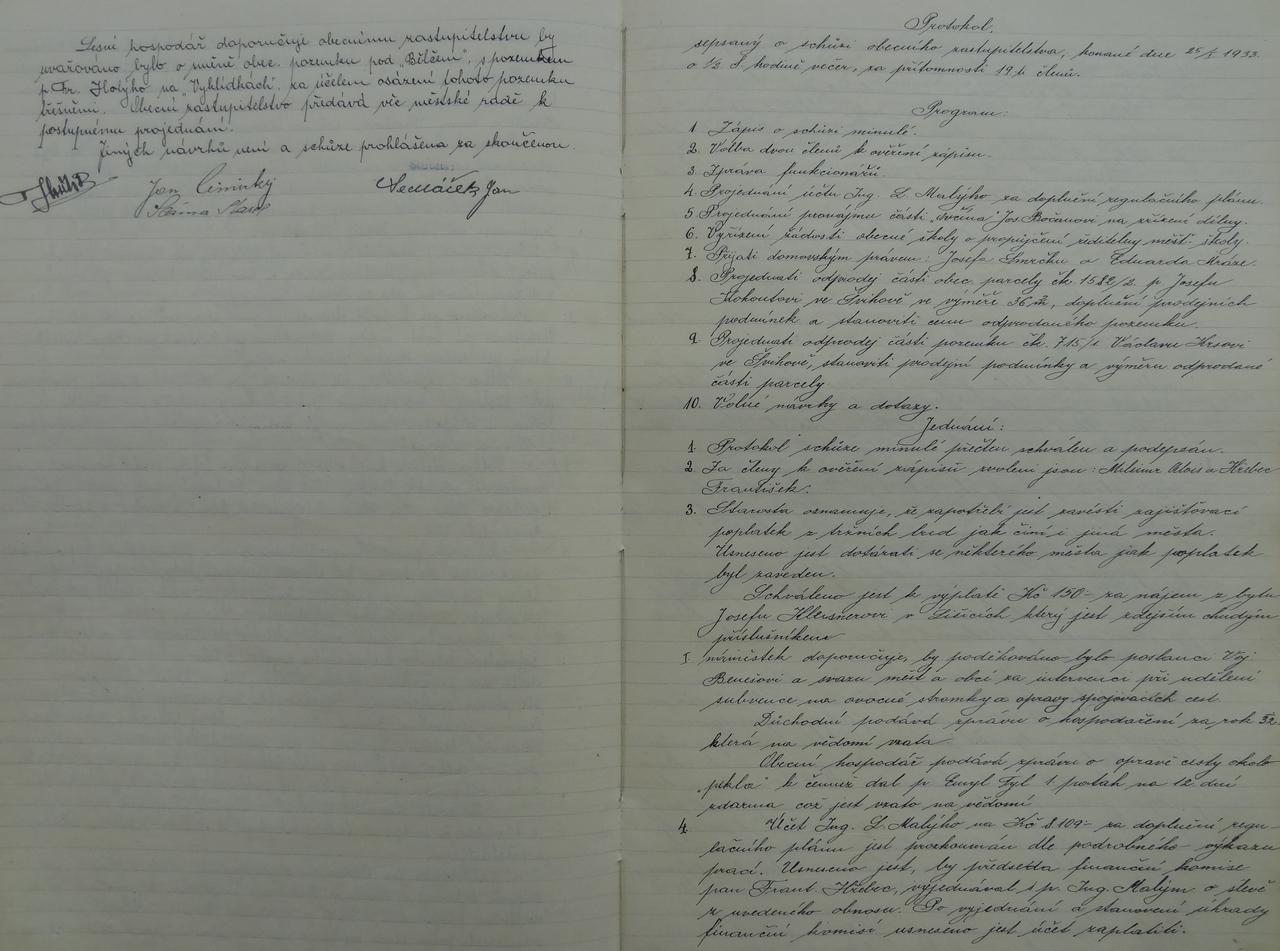 Lesní hospodář doporučuje obecnímu zastupitelstvu by
uvažováno bylo o směně obec. pozemku pod „Bělečem", s pozemkem
p. Fr. Holýho na „Vyhlídkách" za účelem osázení tohoto pozemku
třešněmi. Obecní zastupitelstvo předává věc městské radě k
postupnému projednání.
Jiných návrhů není a schůze prohlášena za skončenou.
Jan
Jan
Protokol,
sepsaný o schůzi obecního zastupitelstva, konané dne 25/I 1933
o 1/2 8 hodině večer, za přítomnosti 19ti členů.
Program:
1 Zápis o schůzi minulé.
2. Volba dvou členů k ověření zápisu.
3. Zpráva funkcionářů.
4. Projednání účtu Ing. L. Malýho za doplnění regulačního plánu.
5 Projednání pronájmu části Jos. Bočanovi na zřízení dílny.
6. Vyřízení žádosti obecné školy o propůjčení ředitelny měšť. školy.
7. Přijatí domovským právem: Josefa Smrčku a Eduarda Mráze.
8. Projednati odprodej části obec. parcely čk. 1582/2. p. Josefu
Kohoutovi ve Švihově ve výměře 36 m², doplnění prodejních
podmínek a stanoviti cenu odprodaného pozemku.
9. Projednati odprodej části pozemku čk. 715/1 Václavu Krsovi
ve Švihově, stanoviti prodejní podmínky a výměru odprodané
části parcely
10. Volné návrhy a dotazy.
Jednání:
1. Protokol schůze minulé přečten schválen a podepsán.
2. Za členy k ověření zápisů zvoleni jsou: Alois a Hřebec
František.
3. Starosta oznamuje, že zapotřebí jest zavésti zajišťovací
poplatek z tržních bud jak činí i jiná města.
Usneseno jest dotázati se některého města jak poplatek
byl zaveden.
Schváleno jest k výplatě Kč 150– za nájem z bytu
Josefu v Lišicích který jest zdejším chudým
příslušníkem
I. náměstek doporučuje, by poděkováno bylo poslanci Voj.
Benešovi a svazu měst a obcí za intervenci při udělení
subvence na ovocné stromky a opravy spojovacích cest.
Důchodní podává zprávu o hospodaření za rok 32.
která na vědomí vzata
Obecní hospodář podává zprávu o opravě cesty okolo
„pekla" k čemuž dal p. Emyl Tyl 1 potah na 12 dní
zdarma což jest vzato na vědomí
4. Účet Ing. L. Malýho na Kč 8.109– za doplnění regu-
lačního plánu jest prozkoumán dle podrobného výkazu
prací. Usneseno jest, by předseda finanční komise
pan Frant. Hřebec, vyjednával s p. Ing. Malým o slevě
z uvedeného obnosu. Po vyjednání a stanovení úhrady
finanční komisí usneseno jest účet zaplatiti.